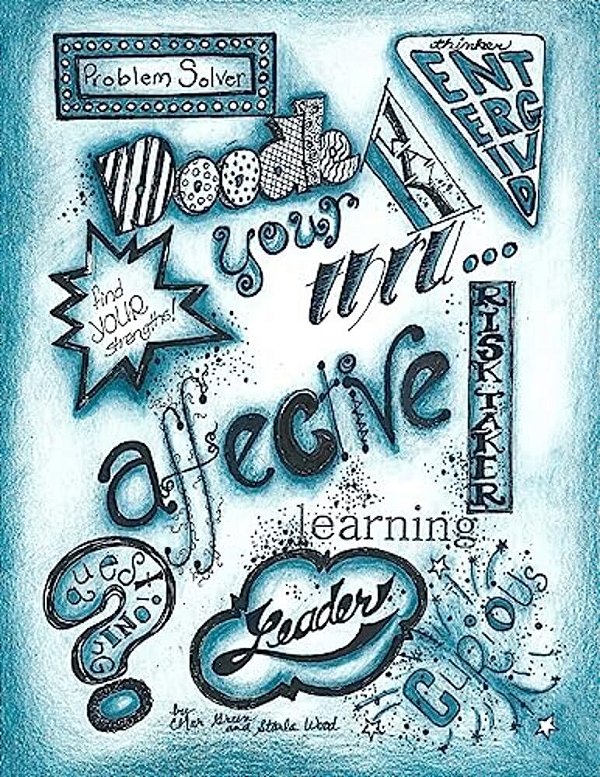 Problem Solver
thinker
ENT
ERG
IV
D
Doodle
your
WAY
thru...
find
YOUR
strengths!
RISK TAKER
affective
learning
QUESTIONING
Leader
CURIOUS
by
Green
and Starla Wood